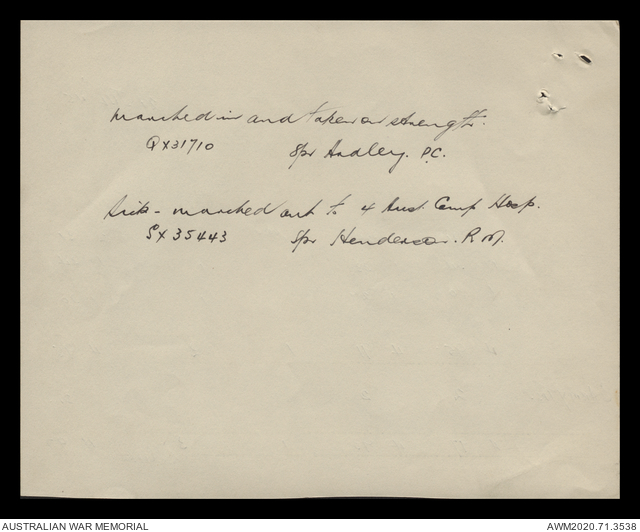 Marched in and taken on strength.
QX31710 Spr Hadley. P.C.
Sick - marched out to 4 Aust. Camp Hosp.
SX35443 Spr Henderson. R.M.
AUSTRALIAN WAR MEMORIAL
AWM2020.71.3538